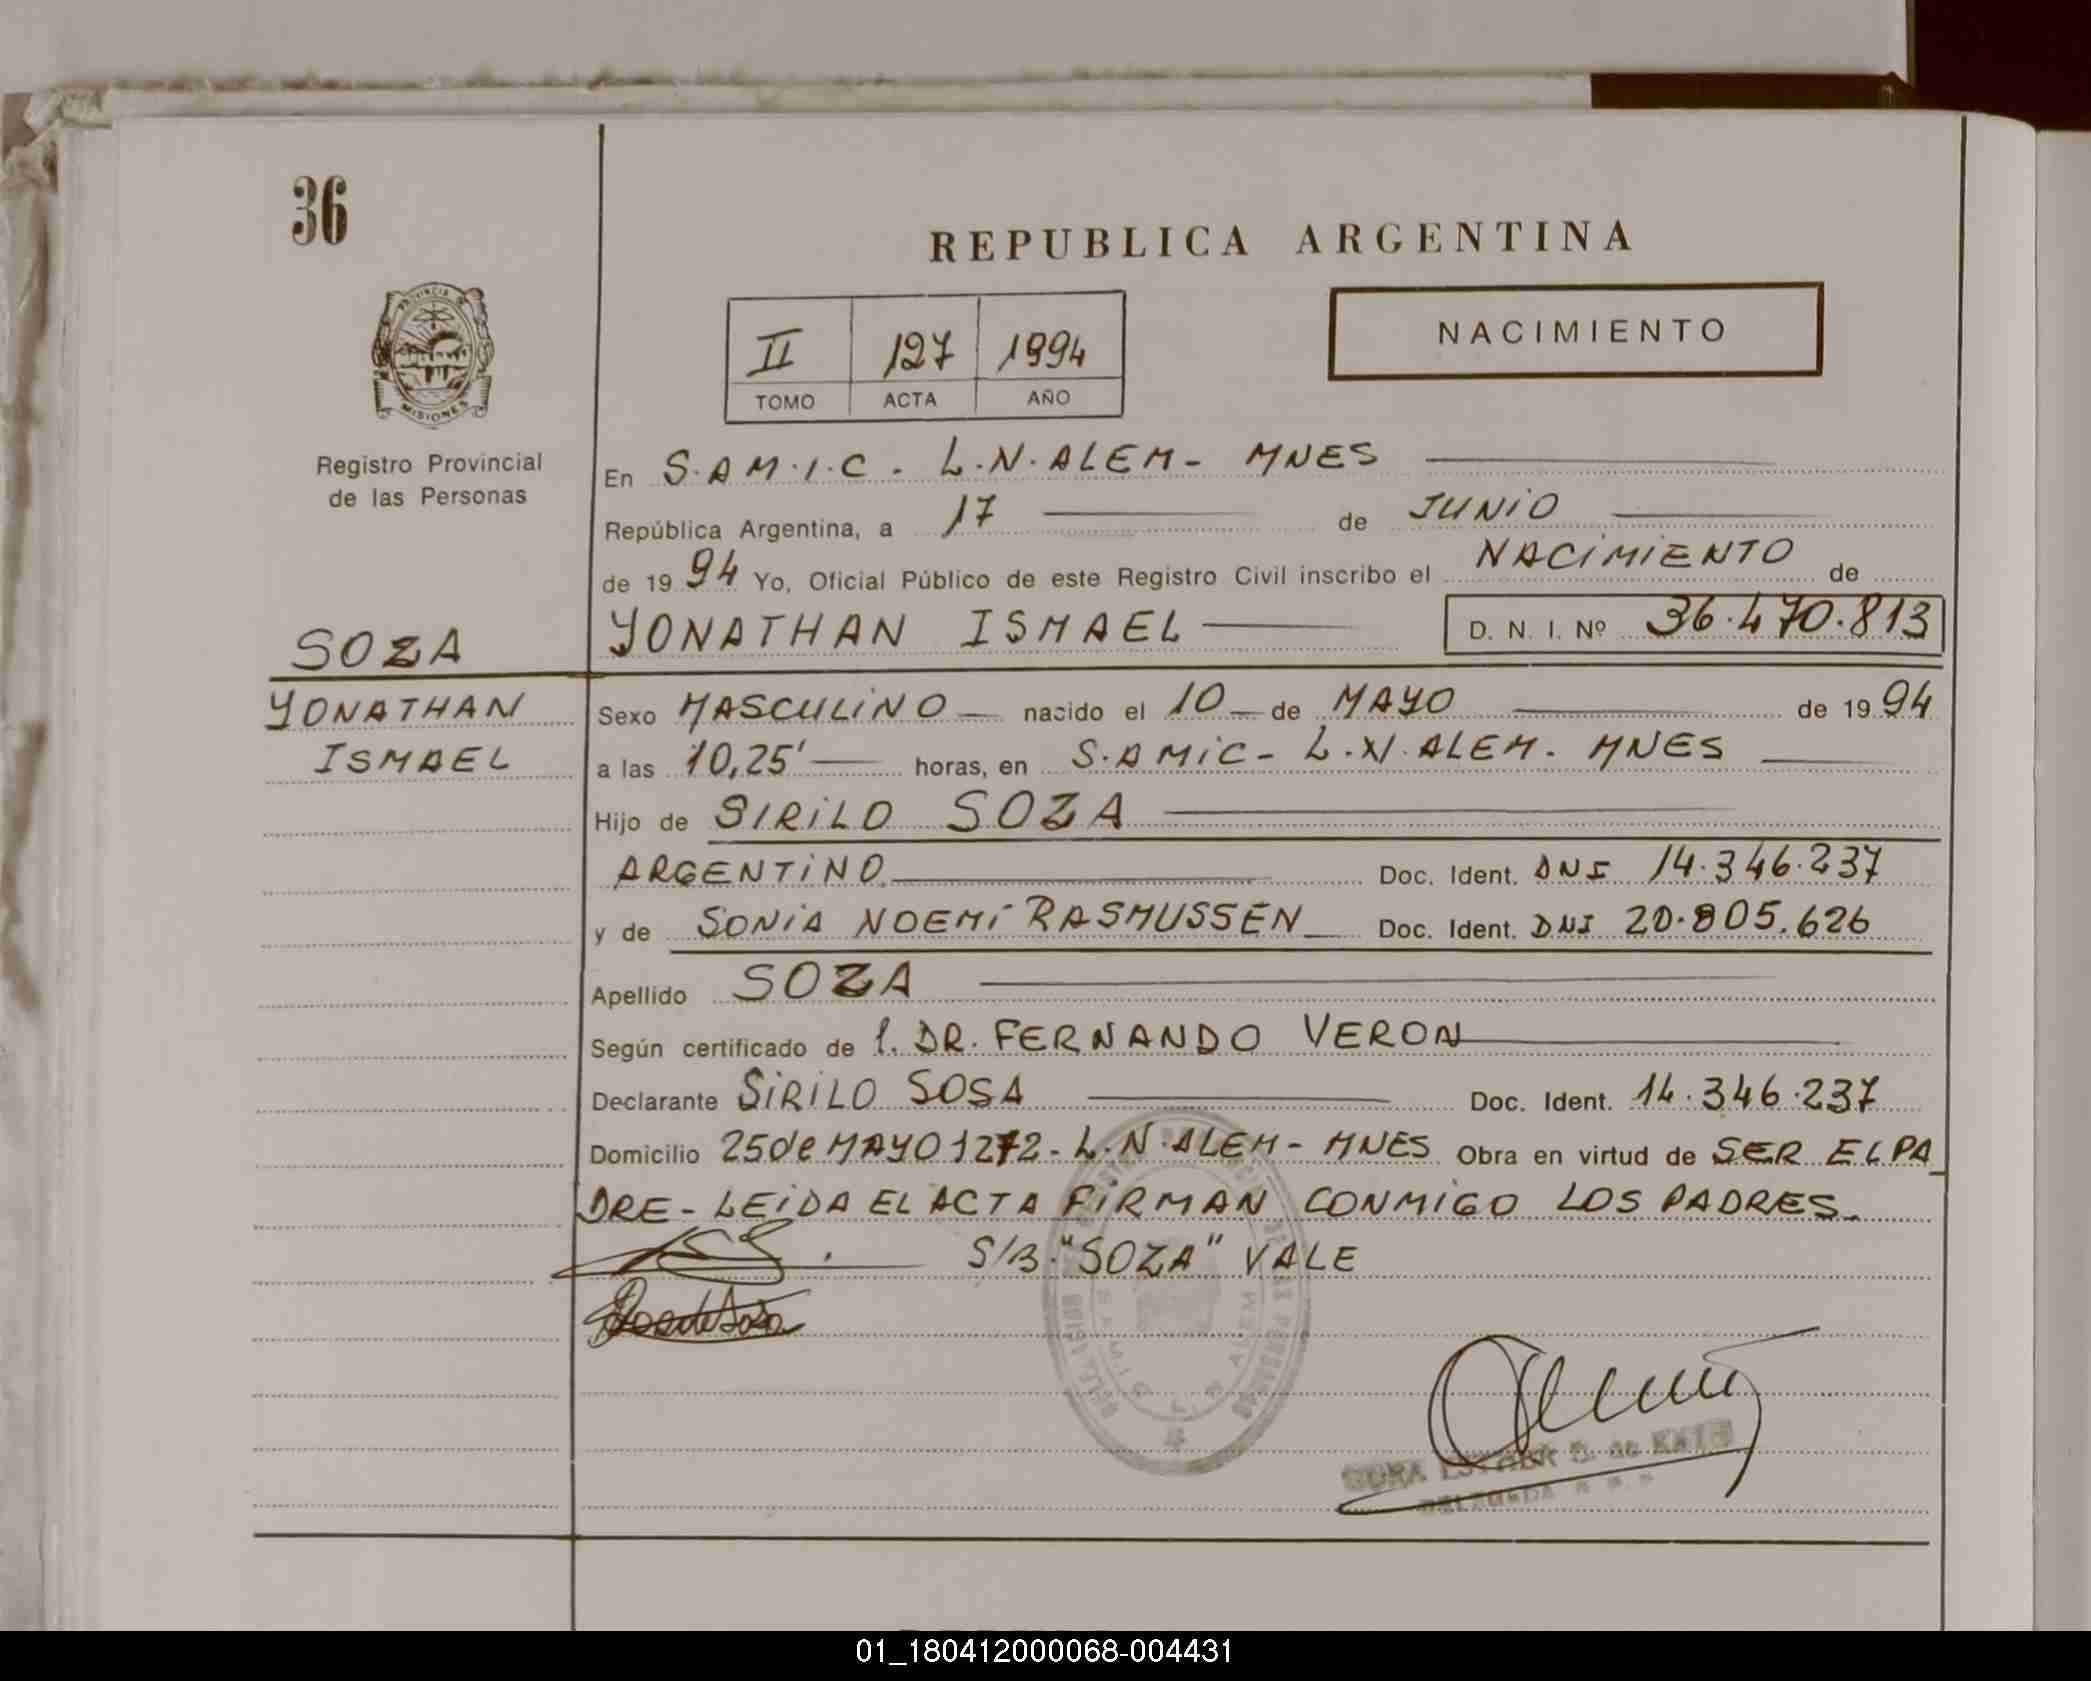 36
REPUBLICA ARGENTINA
PROVINCIA
MISIONES
II 127 1994
TOMO ACTA AÑO
NACIMIENTO
Registro Provincial
de las Personas
En S.AM.I.C. L.N.ALEM- MNES
República Argentina, a 17 de JUNIO
de 1994 Yo, Oficial Público de este Registro Civil inscribo el NACIMIENTO de
YONATHAN ISMAEL D. N. I. Nº 36.470.813
SOZA
YONATHAN
ISMAEL
Sexo MASCULINO nacido el 10 de MAYO de 1994
a las 10,25' horas, en S.AMIC- L.N.ALEM. MNES
Hijo de SIRILO SOZA
ARGENTINO Doc. Ident. DNI 14.346.237
y de SONIA NOEMÍ RASMUSSEN Doc. Ident. DNI 20.805.626
Apellido SOZA
Según certificado de l. DR. FERNANDO VERON
Declarante SIRILO SOSA Doc. Ident. 14.346.237
Domicilio 25 de MAYO 1272- L.N.ALEM- MNES Obra en virtud de SER EL PA
DRE- LEIDA EL ACTA FIRMAN CONMIGO LOS PADRES.
S/B. "SOZA" VALE
DELEGADA
01_180412000068-004431